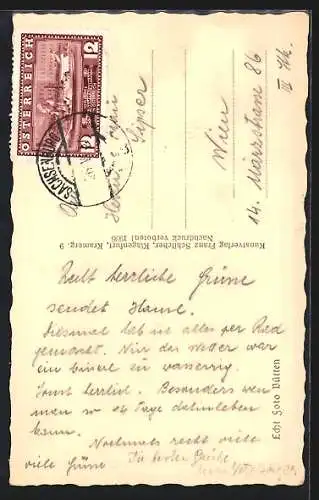 ÖSTERREICH
12
12
SACHSENBURG
Herrn
Sipser
Wien
14. Märzstrasse 86
III Stk.
Kunstverlag Franz Schilcher, Klagenfurt, Kramerg. 9
Nachdruck verboten! 1936
Echt Foto Bütten
Recht herrliche Grüsse
sendet Hansl.
Diesmal hab ich alles per Rad
gemacht. Nur das Wetter war
ein bissel zu wasserig.
Sonst herrlich. Besonders wenn
man so 14 Tage
kann.
Nochmals recht viele
viele Grüsse